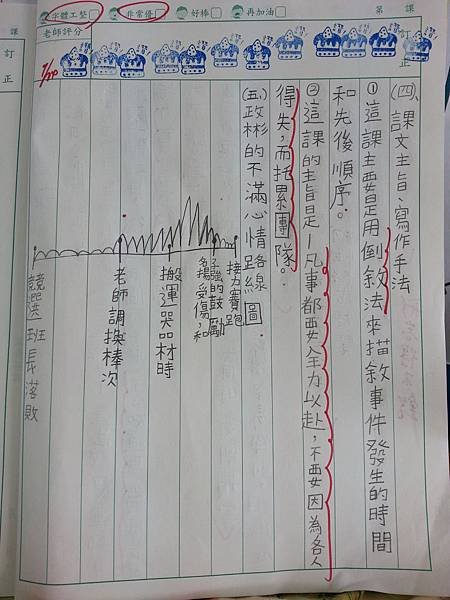 字體工整 非常優 好棒 再加油 第 課
老師評分
訂正
(四)、課文主旨、寫作手法
①這課主要是用倒敘法來描敘事件發生的時間
和先後順序。
②這課的主旨是—凡事都要全力以赴,不要因為各人
得失,而托累團隊。
(五)政彬的不滿心情路線圖
接力賽跑
受傷,和
的鼓勵
搬運器材時
老師調換棒次
競選班長落敗
課
訂正